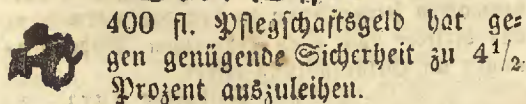 400 fl. Pflegschaftsgeld hat ge=
gen genügende Sicherheit zu 4 1/2
Prozent auszuleihen.